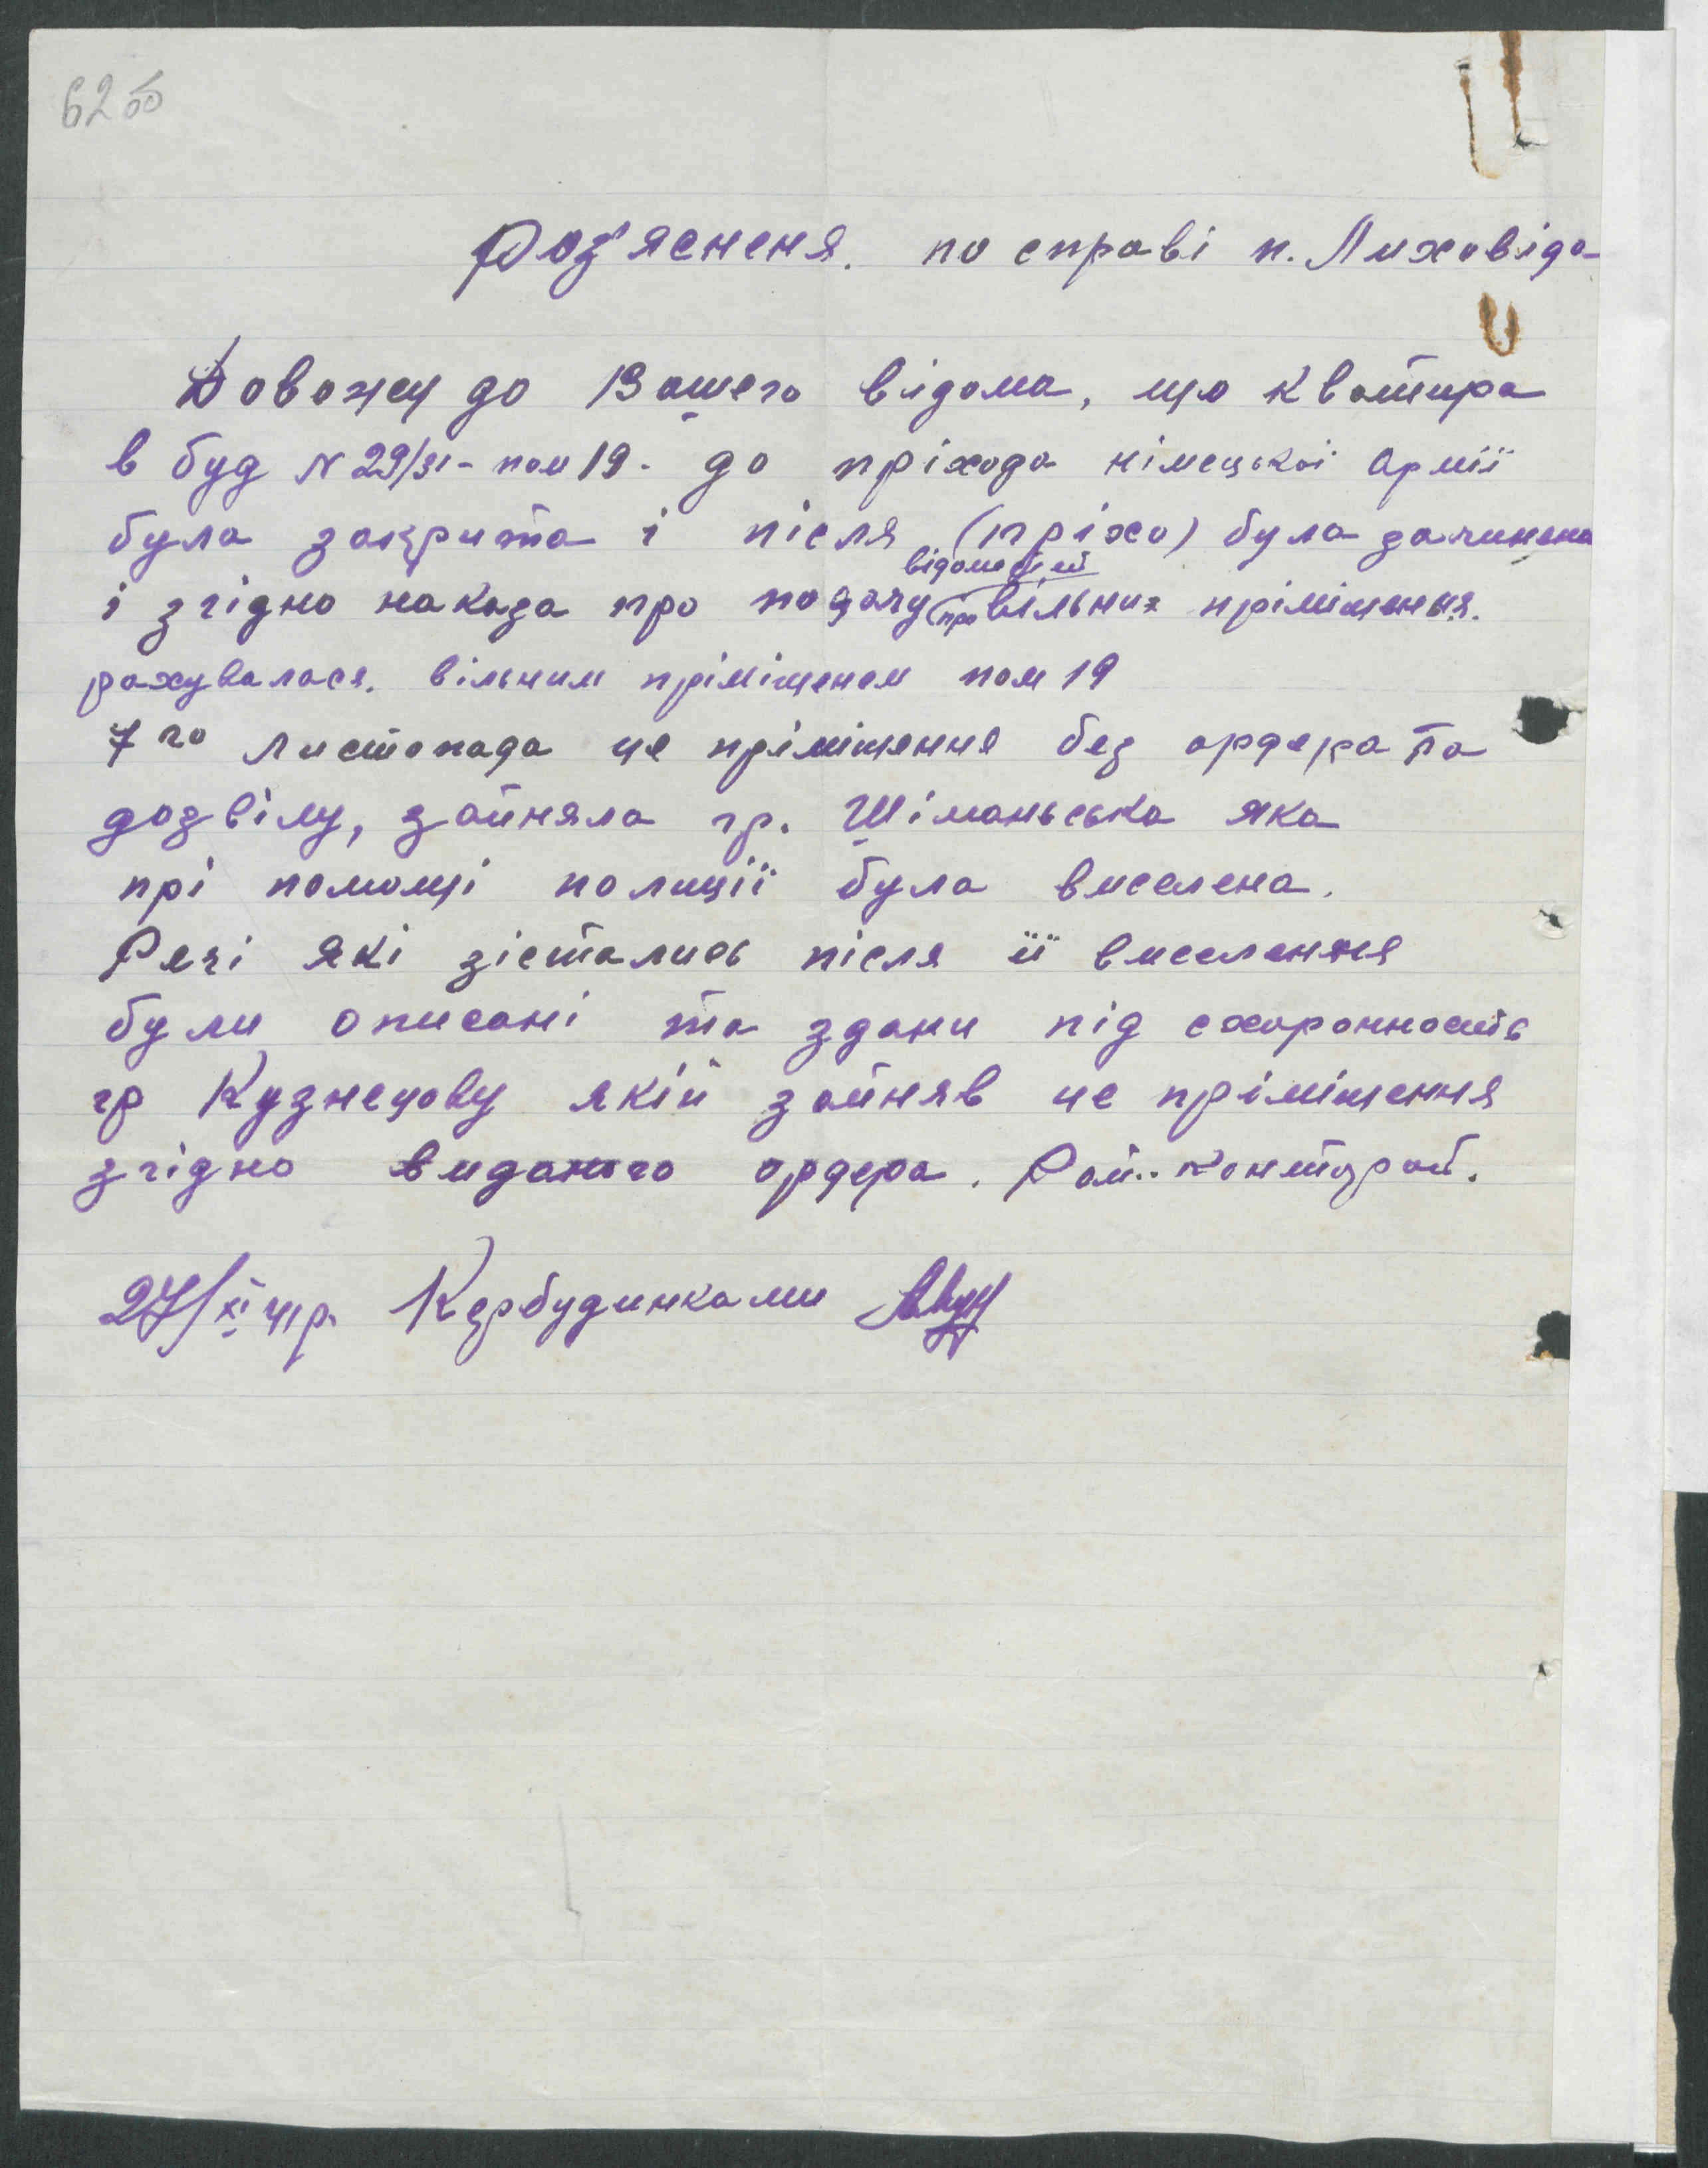 62 об
Роз'ясненя. по справі п. Лиховіда
Довожу до Вашего відома, що квотира
в буд N 29/31 - пом 19. до пріхода німецькоі Армії
була закрита і після (пріхо) була зачинена
відомостей
і згідно наказа про подачу (про вільних пріміщення.
рахувалася. вільним пріміщенем пом 19
7го листопада це пріміщення без ордера та
дозвілу, зайняла гр. Шіманьська яка
прі помощі полиціі була виселена.
Речі які зістались після її виселення
були описані та здани під схоронность
гр Кузнецову якій зайняв це пріміщення
згідно виданого ордера. Рай.. конторой.
27/XI 41р. Кербудинками